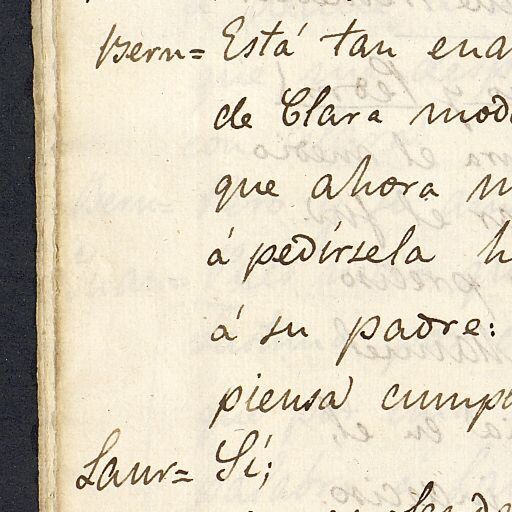 Bern= Está tan ena
de Clara mod
que ahora m
á pedírsela h
á su padre:
piensa cump
Laur= Sí;